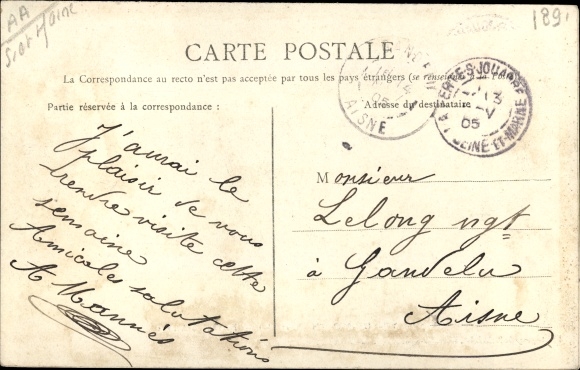 AA
189
CARTE POSTALE
La Correspondance au recto n'est pas acceptée par tous les pays étrangers (se renseigner à la Poste)
Partie réservée à la correspondance :
Adresse du destinataire
J'aurai le
plaisir de vous
rendre visite cette
semaine
Amicales salutations
A Mannès
Monsieur
Lelong ngt
à Gandelu
Aisne
AISNE
05
LA FERTÉ-S-JOUARRE
13
05
SEINE-ET-MARNE